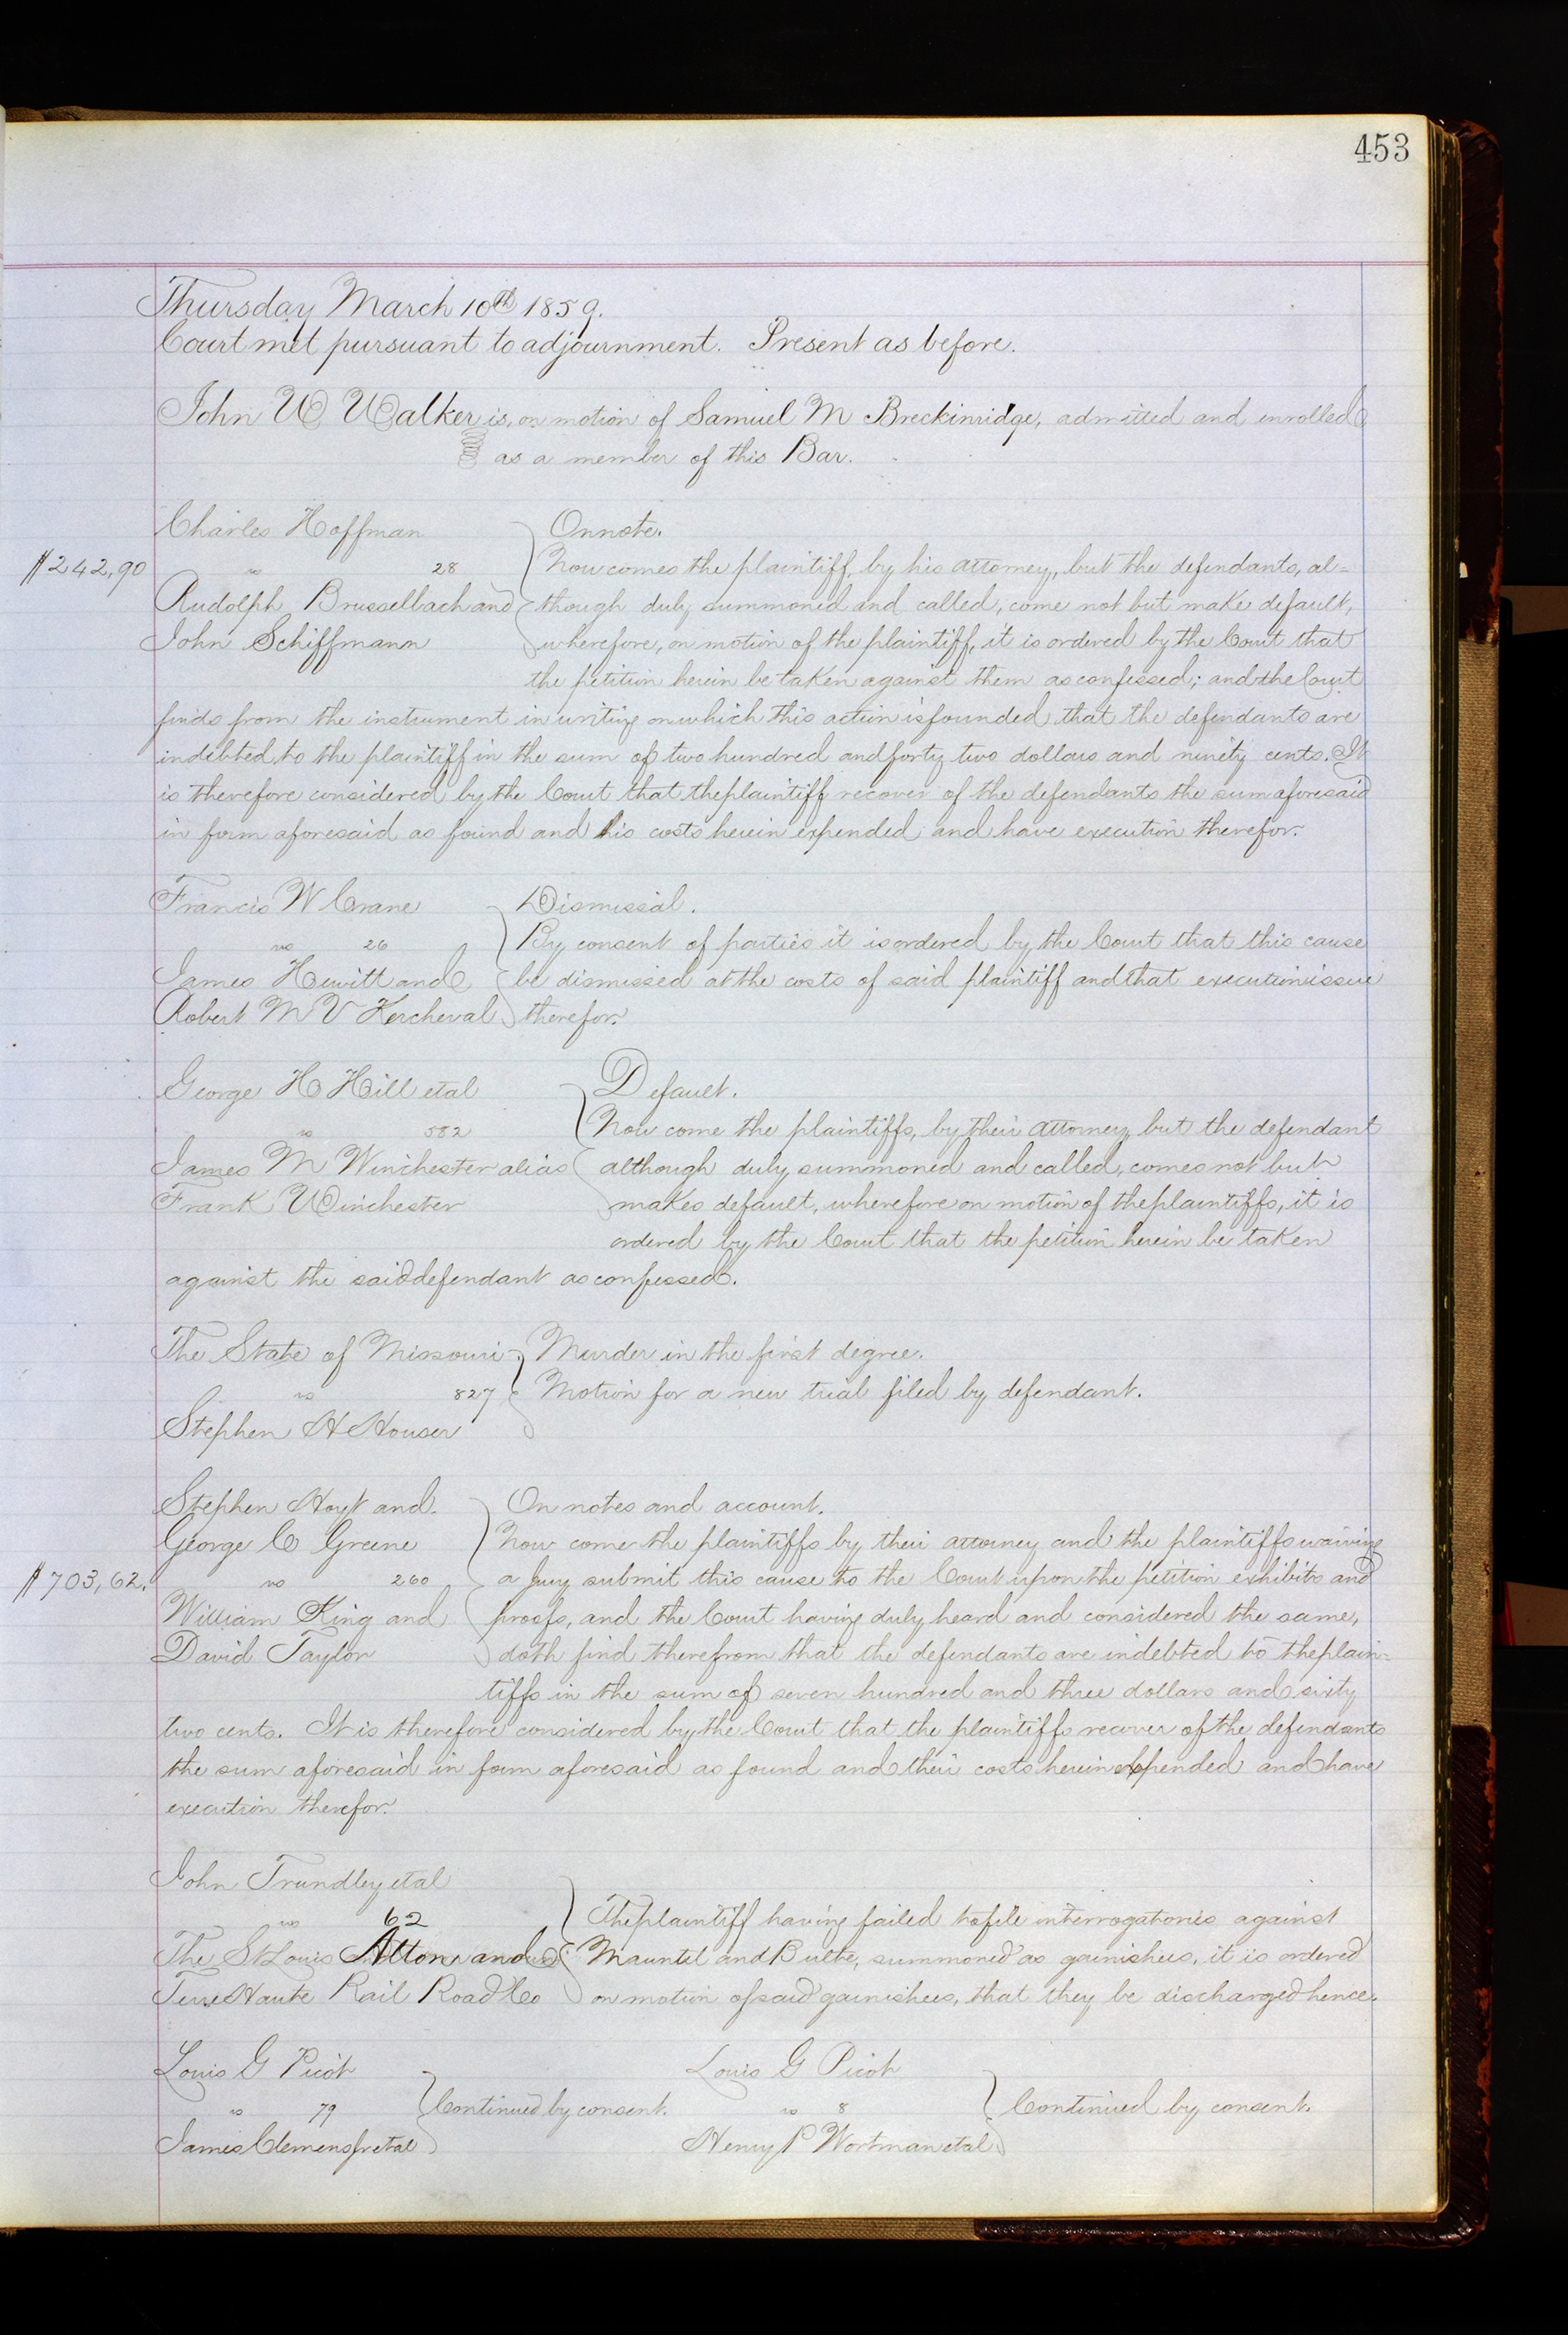 453
Thursday March 10th 1859.
Court met pursuant to adjournment. Present as before.
John W Walker is, on motion of Samuel M Breckinridge, admitted and enrolled
as a member of this Bar.
Charles Hoffman
vs 28
Rudolph Brusselbach and
John Schiffmann
$242,90
On note.
Now comes the plaintiff, by his attorney, but the defendants, al=
though duly summoned and called, come not but make default,
wherefore, on motion of the plaintiff, it is ordered by the Court that
the petition herein be taken against them as confessed; and the Court
finds from the instrument in writing on which this action is founded that the defendants are
indebted to the plaintiff in the sum of two hundred and forty two dollars and ninety cents. It
is therefore considered by the Court that the plaintiff recover of the defendants the sum aforesaid
in form aforesaid as found and his costs herein expended and have execution therefor.
Francis W Crane
vs 26
James Hewitt and
Robert M V Kercheval
Dismissal.
By consent of parties it is ordered by the Court that this cause
be dismissed at the costs of said plaintiff and that execution issue
therefor.
George H Hill etal
vs 582
James M Winchester alias
Frank Winchester
Default.
Now come the plaintiffs, by their attorney, but the defendant
although duly summoned and called, comes not but
makes default, wherefore on motion of the plaintiffs, it is
ordered by the Court that the petition herein be taken
against the said defendant as confessed.
The State of Missouri
vs 827
Stephen H Houser
Murder in the first degree.
Motion for a new trial filed by defendant.
Stephen Hoyt and
George C Greene
vs 260
William King and
David Taylor
$703,62.
On notes and account.
Now come the plaintiffs by their attorney and the plaintiffs waiving
a Jury submit this cause to the Court upon the petition exhibits and
proofs, and the Court having duly heard and considered the same,
doth find therefrom that the defendants are indebted to the plain=
tiffs in the sum of seven hundred and three dollars and sixty
two cents. It is therefore considered by the Court that the plaintiffs recover of the defendants
the sum aforesaid in form aforesaid as found and their costs herein expended and have
execution therefor.
John Trundley etal
vs 62
The St Louis Alton and
Terre Haute Rail Road Co
The plaintiff having failed to file interrogatories against
Mauntel and Bulte, summoned as garnishees, it is ordered
on motion of said garnishees, that they be discharged hence.
Louis G Picot
vs 79
James Clemens Jr etal
Continued by consent.
Louis G Picot
vs 8
Henry P Wortman etal
Continued by consent.